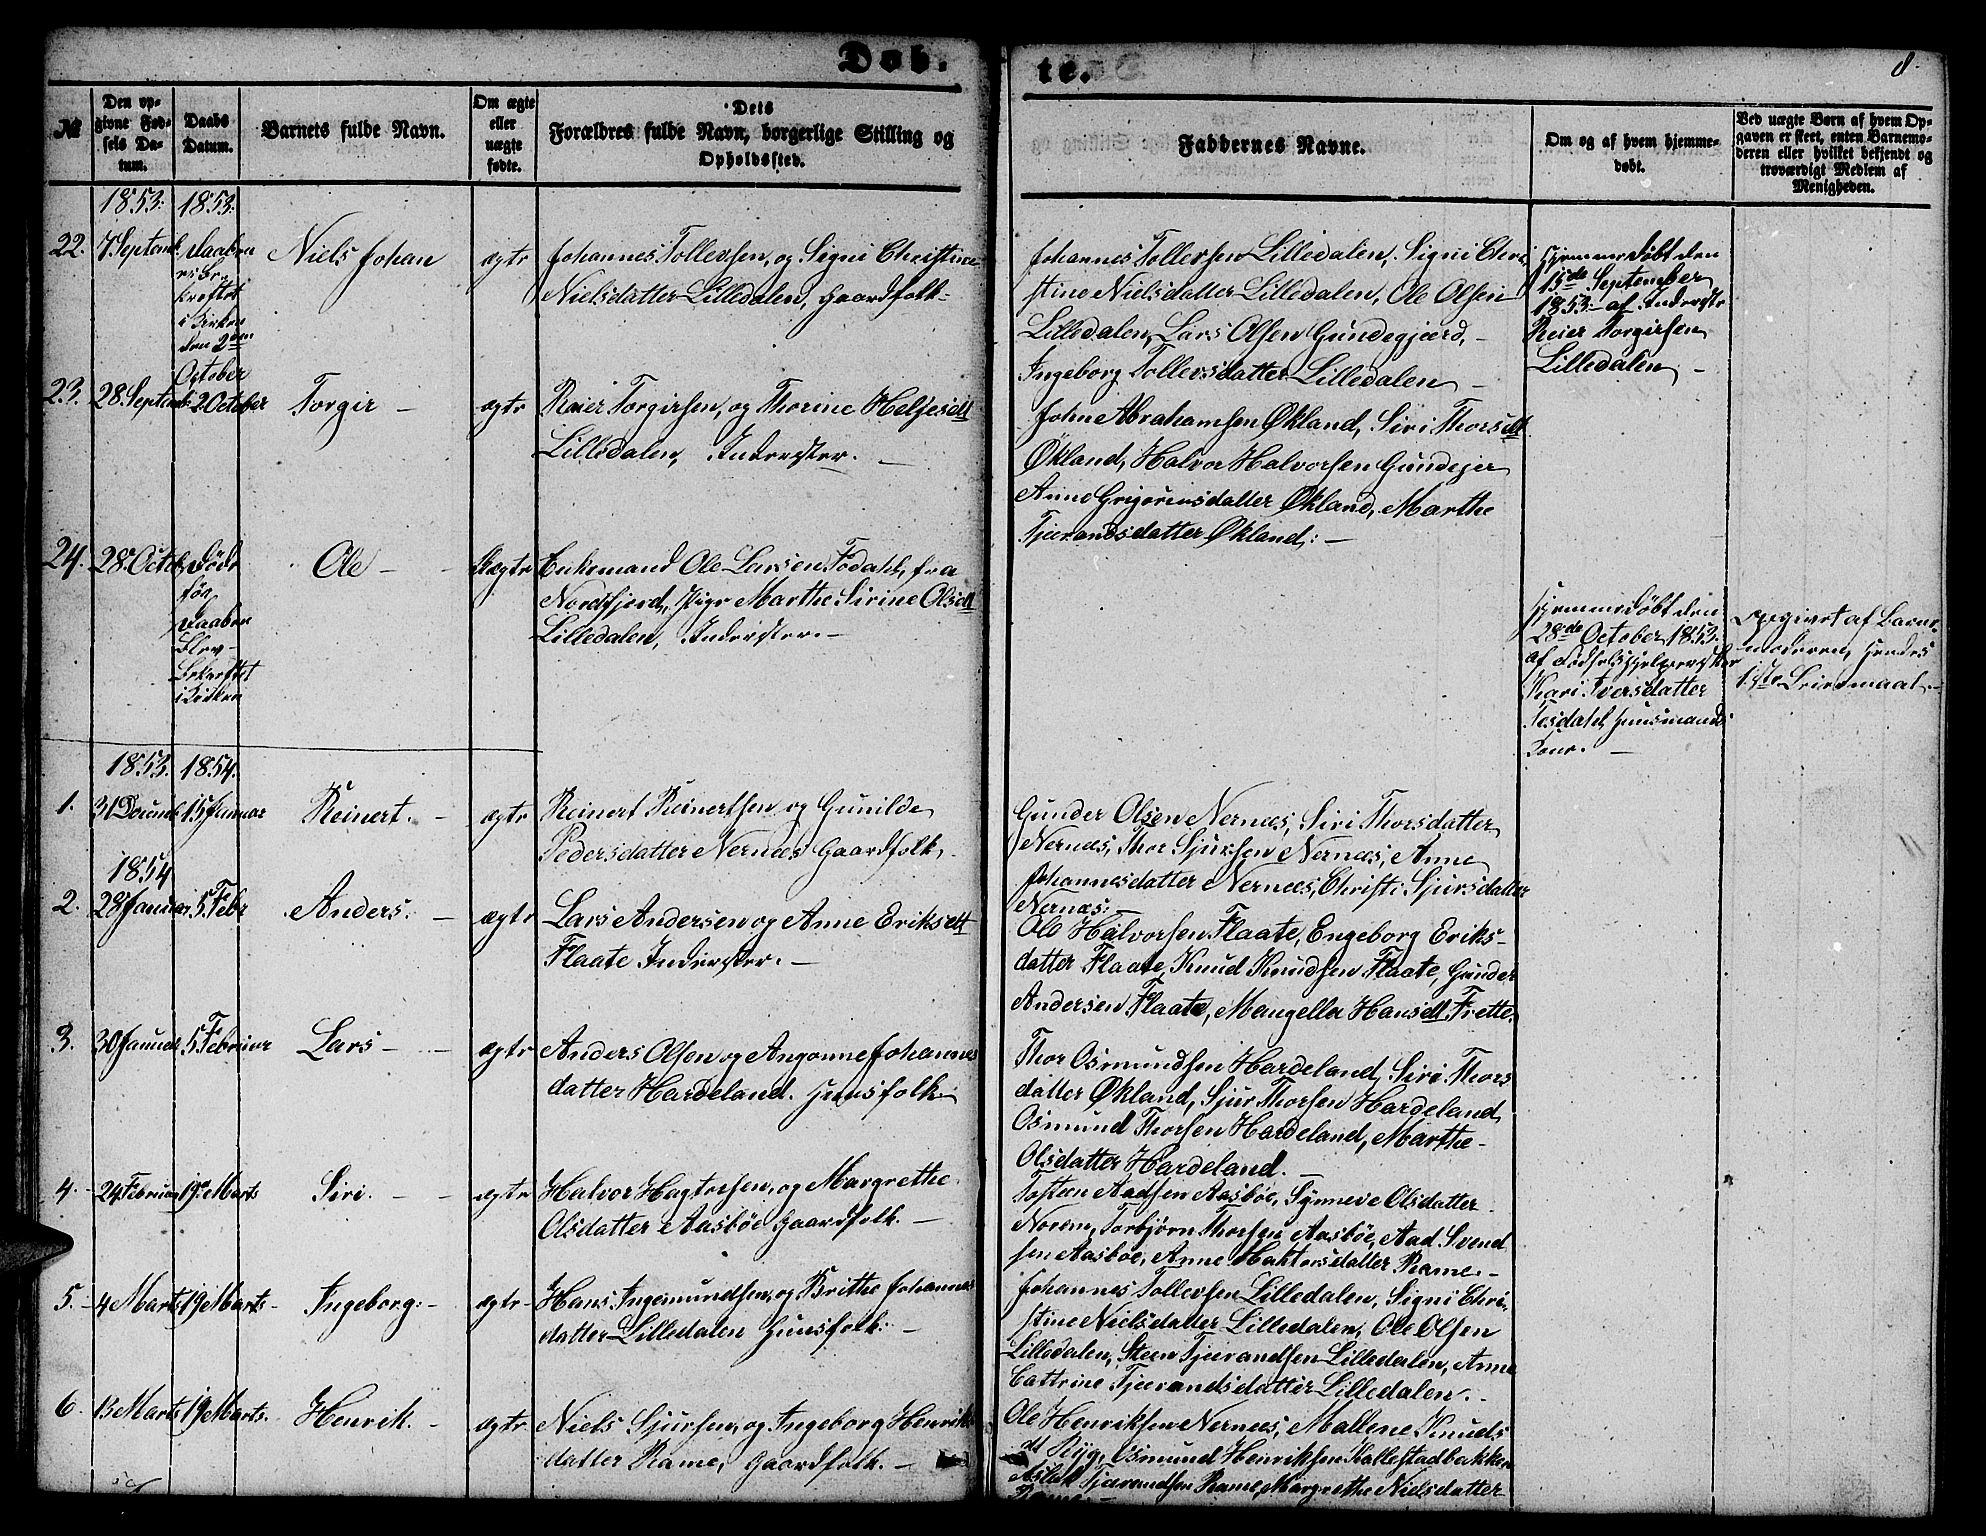 Døb-
te.
8
№
Den op-
givne Fød-
sels Da-
tum.
Daabs
Datum.
Barnets fulde Navn.
Om ægte
eller
uægte
fødte.
Dets
Forældres fulde Navn, borgerlige Stilling og
Opholdssted.
Faddernes Navne.
Om og af hvem hjemme-
døbt.
Ved uægte Børn af hvem Op-
gaven er skeet, enten Barnemo-
deren eller hvilket bekjendt og
troværdigt Medlem af
Menigheden.
1853. 1853.
22. 7 Septemb. Daaben
kræftet
i Kirken
den 2den
October
Niels Johan
ægte
Johannes Tollevsen, og Signi Christine
Nielsdatter Lilledalen, Gaardfolk.
Johannes Tollevsen Lilledalen, Signi Chri-
stine Nielsdatter Lilledalen, Ole Olsen
Lilledalen, Lars Olsen Gundegjærd, -
Ingeborg Tollevsdatter Lilledalen -
Hjemmedøbt den
15de September
1853. af Inderste
Reier Torgirsen
Lilledalen -
23. 28 Septemb. 2 October Torgir - ægte
Reier Torgirsen, og Thorine Helgesdtt
Lilledalen, Inderster. -
John Abrahamsen Økland, Siri Thorsdtt
Økland, Halvor Halvorsen Gundejer
Anne Grigoriusdatter Økland, Marthe
Tjerandsdatter Økland: -
24. 28 Octob. Døde
før
Daaben
blev
bekræftet
i Kirken
Ole - Uægte
Enkemand Ole Larsen Fodahl, fra
Nordfjord, Pige Marthe Sirine Olsdtt
Lilledalen, Inderster. -
Hjemmedøbt den
28de October 1853.
af Fødselshjelperske
Kari Iversdatter
Huusmands
Kone. -
opgivet af Barne-
moderen, hendes
1ste Leiermaal. -
1853. 1854.
1. 31 Decemb. 15 Januar Reinert. - ægte
Reinert Reinertsen og Gunilde
Pedersdatter Nernæs Gaardfolk.
Gunder Olsen Nernæs, Siri Thorsdatter
Nernæs, Thor Sjursen Nernæs, Anne
Johannesdatter Nernæs, Christi Sjursdatter
Nernæs: -
1854
2. 28 Januar 5 Febr Anders. - ægte
Lars Andersen og Anne Eriksdtt
Flaate Inderster. -
Ole Halvorsen Flaate, Engeborg Eriks-
datter Flaate, Knud Knudsen Flaate, Gunder
Andersen Flaate, Mangella Hansdtt Frette.
3. 30 Januar 5 Februar Lars - ægte
Anders Olsen og Angonne Johannes
datter Hardeland. Huusfolk.
Thor Osmundsen Hardeland, Siri Thors
datter Økland, Sjur Thorsen Hardeland,
Osmund Thorsen Hardeland, Marthe
Olsdatter Hardeland. -
4. 24 Februar 19de Marts Siri. - - ægte
Halvor Hagtorsen, og Margrethe
Olsdatter Aasbøe Gaardfolk. -
Tosten Aadsen Aasbøe, Synneve Olsdatter
Torbjørn Thorsen Aasbøe, Aad Svend
sen Aasbøe, Anne Haktorsdatter Rame. -
5. 4 Marts 19 Marts - Ingeborg: - ægte -
Hans Ingemundsen, og Brithe Johannes
datter Lilledalen Huusfolk. -
Johannes Tollevsen Lilledalen, Signi Chri-
stine Nielsdatter Lilledalen, Ole Olsen
Lilledalen, Steen Tjerandsen Lilledalen, Anne
Cattrine Tjerandsdatter Lilledalen. -
6. 13 Marts 19 Marts. Henrik. - ægte
Niels Sjursen, og Ingeborg Henriks
datter Rame, Gaardfolk. -
Ole Henriksen Nernæs, Mallene Knuds
dt Ryg, Osmund Henriksen Kallestadbakken
Aslak Tjerandsen Rame, Margrethe Nielsdatter
Rame. -